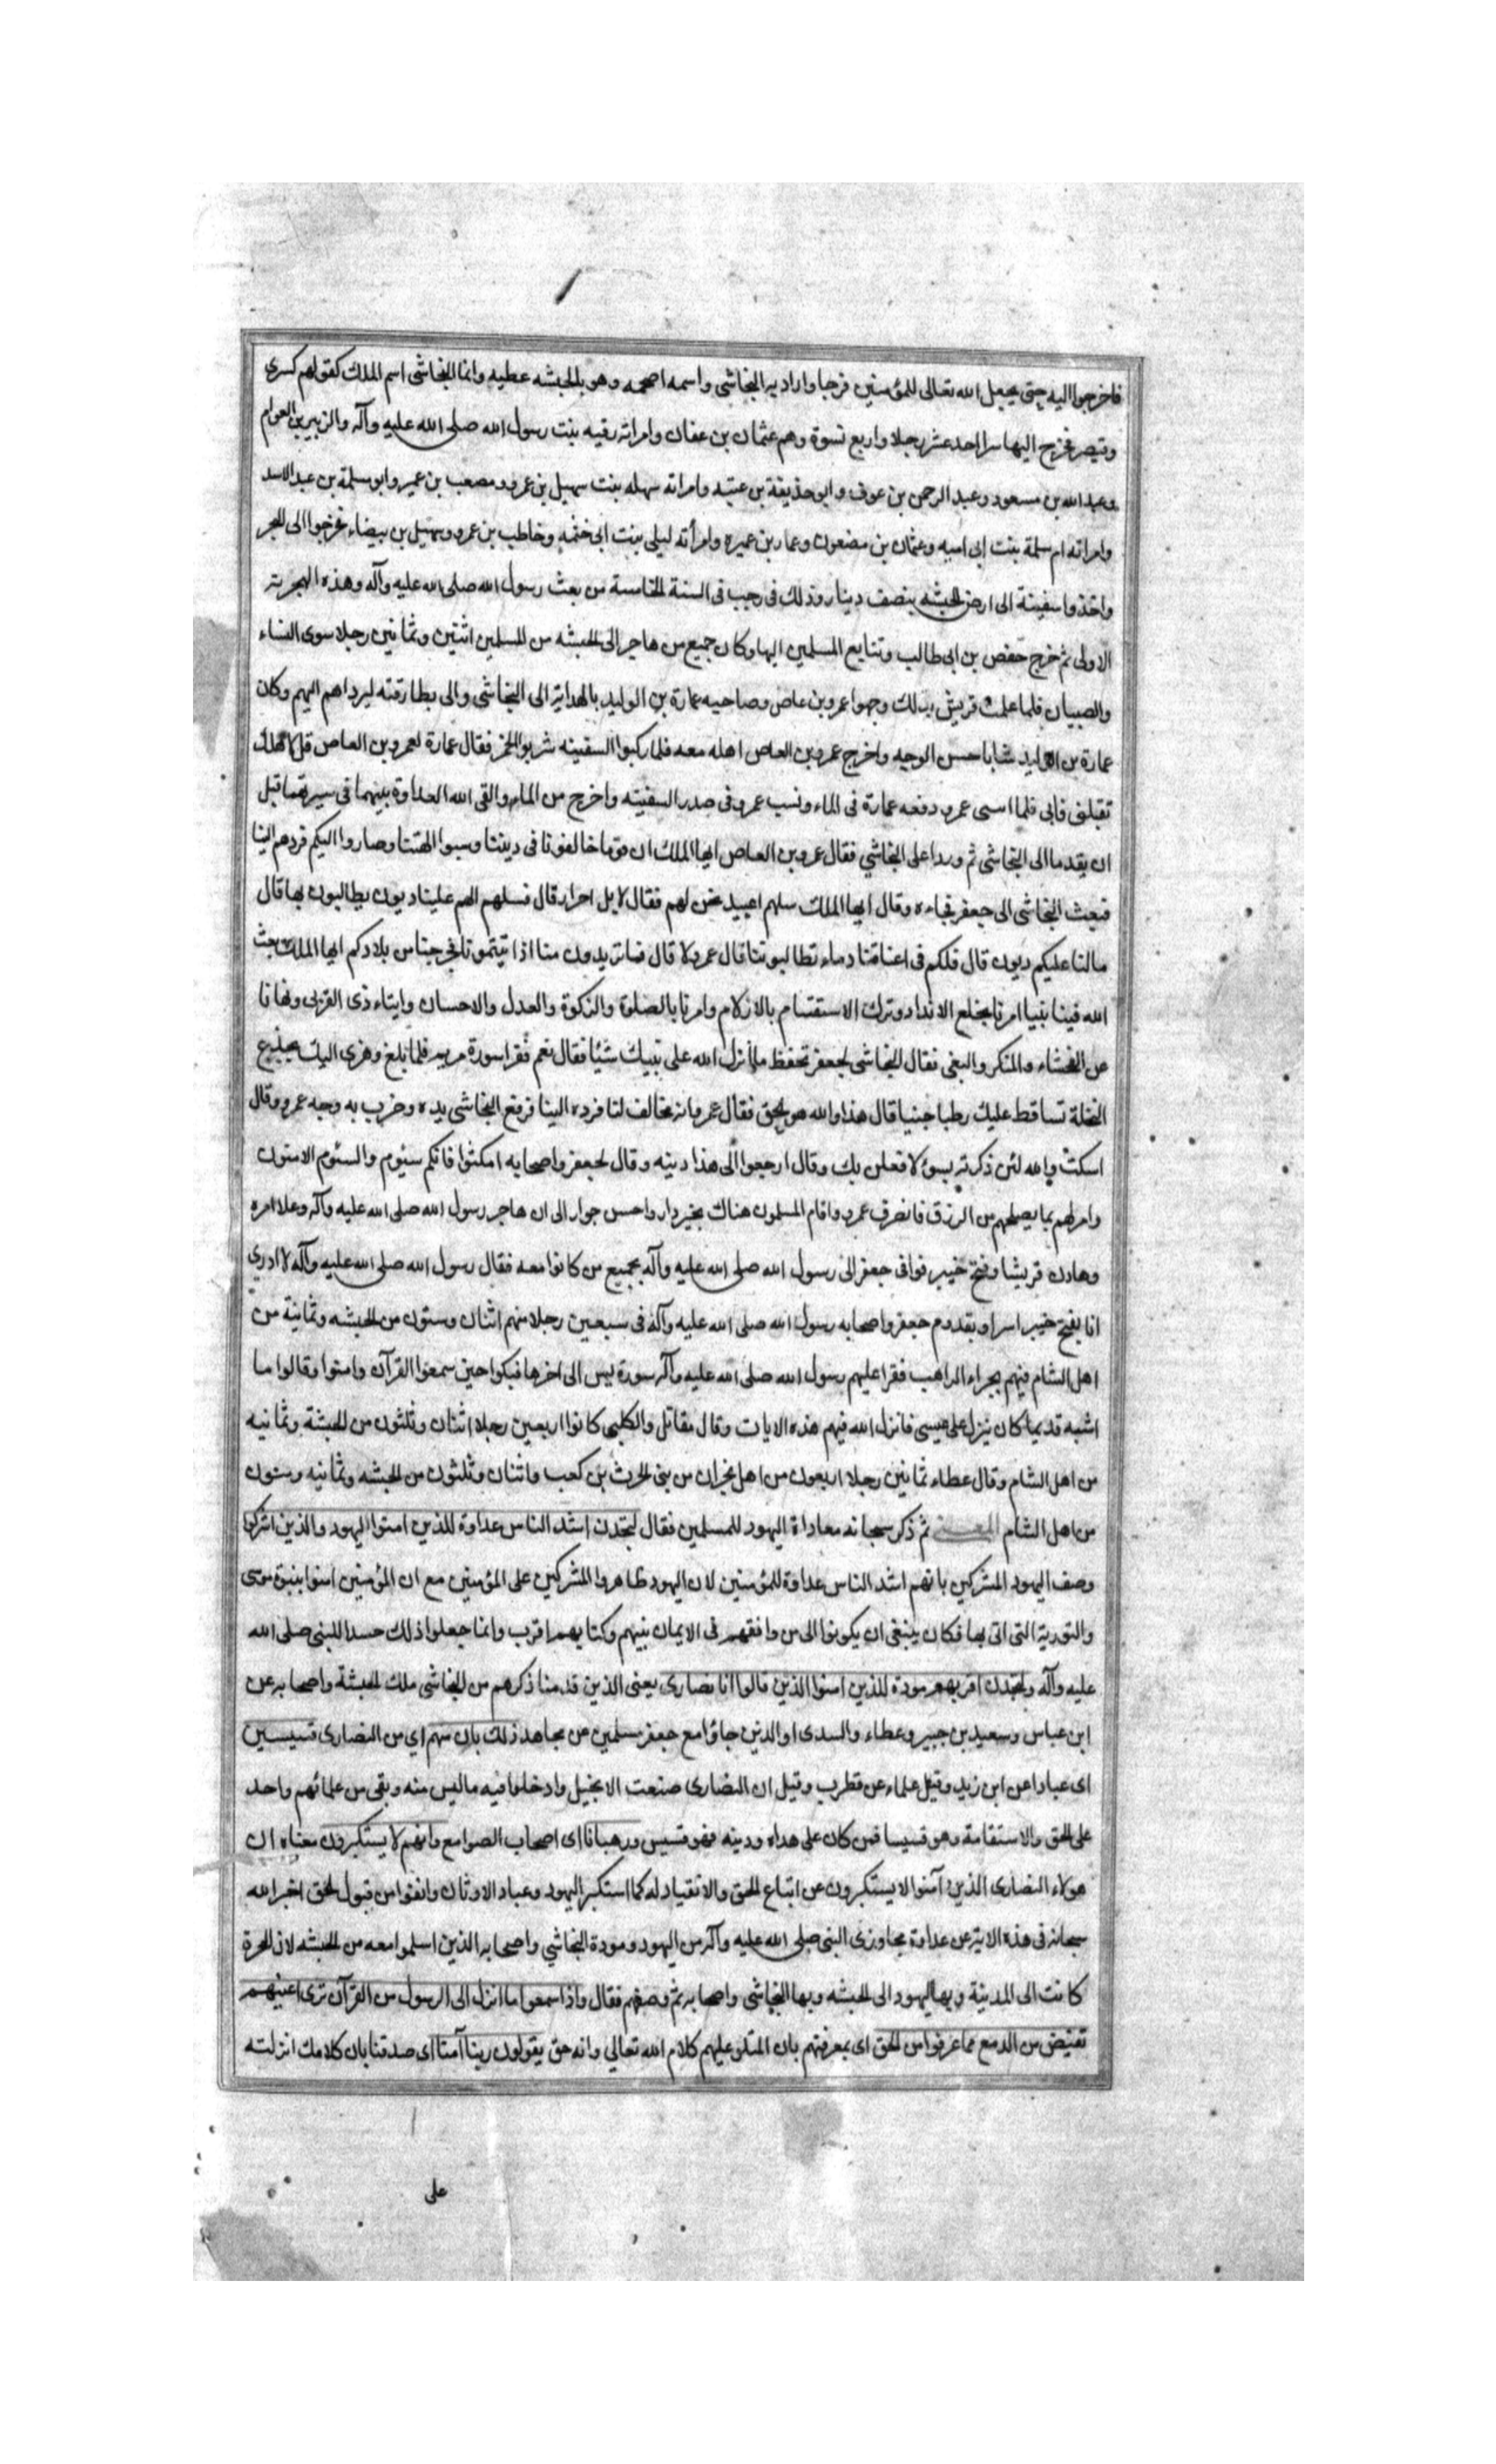 فاخرجوا اليه حتى يجعل الله تعالى للمؤمنين فرجا واراد به النجاشى واسمه اصحمه وهو بالحبشه عطيه وانما النجاشى اسم الملك كقولهم كسرى
وقيصر فخرج اليها سرا احد عشر رجلا واربع نسوة وهم عثمان بن عفان وامراته رقيه بنت رسول الله صلى الله عليه وآله والزبير بن العوام
وعبد الله بن مسعود وعبد الرحمن بن عوف وابو حذيفة بن عتبه وامراته سهله بنت سهيل بن عمرو ومصعب بن عمير وابو سلمة بن عبد الاسد
وامراته ام سلمة بنت ابى اميه وعثمان بن مضعون وعمار بن عميره وامرأته ليلى بنت ابى خثمه وخاطب بن عمرو وسهيل بن بيضاء فخرجوا الى البحر
واخذوا سفينة الى ارض الحبشه بنصف دينار وذلك فى رجب فى السنة الخامسة من بعث رسول الله صلى الله عليه وآله وهذه الهجرة
الاولى ثم خرج حفص بن ابى طالب وتتابع المسلمين اليها وكان جميع من هاجر الى الحبشه من المسلمين اثنين وثمانين رجلا سوى النساء
والصبيان فلما علمت قريش بذلك وجهوا عمرو بن عاص وصاحبه عمارة بن الوليد بالهداية الى النجاشى والى بطارقته ليرداهم اليهم وكان
عمارة بن الوليد شابا حسن الوجه واخرج عمرو بن العاص اهله معه فلما ركبوا السفينه شربوا الخمر فقال عمارة لعمرو بن العاص قل لاهلك
تقبلنى فابى فلما اسى عمرو دفعه عمارة فى الماء ونسب عمرو فى صدر السفينه واخرج من الماء والقى الله العداوة بينهما فى سيرهما قبل
ان يقدما الى النجاشى ثم وردا على النجاشي فقال عمرو بن العاص ايها الملك ان قوما خالفونا فى ديننا وسبوا الهتنا وصاروا اليكم فردهم الينا
فبعث النجاشى الى جعفر فجاءه وقال ايها الملك سلهم اعبيد نحن لهم فقال لا بل احرار قال فسلهم الهم علينا ديون يطالبون بها قال
مالنا عليكم ديون قال فلكم فى اعناقنا دماء تطالبوننا قال عمرو لا قال فما تريدون منا اذا تيتمونا فخرجنا من بلادكم ايها الملك بعث
الله فينا نبيا امرنا بخلع الانداد وترك الاستقسام بالازلام وامرنا بالصلوة والزكوة والعدل والاحسان وايتاء ذى القربى ونهانا
عن الفحشاء والمنكر والبغى فقال النجاشى لجعفر تحفظ مما انزل الله على نبيك شيئا فقال نعم فقرا سورة مريم فلما بلغ وهزى اليك بجذع
النخلة تساقط عليك رطبا جنيا قال هذا والله هو الحق فقال عمرو انه مخالف لنا فرده الينا فرفع النجاشى يده وضرب به وجه عمرو وقال
اسكت والله لئن ذكرته بسوء لافعلن بك وقال ارجعوا الى هذا دينه وقال لجعفر واصحابه امكثوا فانكم سئوم والسئوم الامنون
وامر لهم بما يصلحهم من الرزق فانصرف عمرو واقام المسلمون هناك بخير دار واحسن جوار الى ان هاجر رسول الله صلى الله عليه وآله وعلا امره
وهادن قريشا وفتح خيبر فوافى جعفر الى رسول الله صلى الله عليه وآله بجميع من كانوا معه فقال رسول الله صلى الله عليه وآله لا ادري
انا بفتح خيبر اسر او بقدوم جعفر واصحابه رسول الله صلى الله عليه وآله فى سبعين رجلا منهم اثنان وستون من الحبشه وثمانية من
اهل الشام فيهم بحراء الراهب فقرا عليهم رسول الله صلى الله عليه وآله سورة يس الى اخرها فبكوا حين سمعوا القرآن وامنوا وقالوا ما
اشبه قديما كان ينزل على عيسى فانزل الله فيهم هذه الايات وقال مقاتل والكلبى كانوا اربعين رجلا اثنان وثلثون من الحبشة وثمانيه
من اهل الشام وقال عطاء ثمانين رجلا اربعون من اهل نجران من بنى الحرث بن كعب واثنان وثلثون من الحبشه وثمانيه وستون
من اهل الشام المعنى ثم ذكر سبحانه معاداة اليهود للمسلمين فقال لتجدن اشد الناس عداوة للذين امنوا اليهود والذين اشركوا
وصف اليهود المشركين بانهم اشد الناس عداوة للمؤمنين لان اليهود ظاهروا المشركين على المؤمنين مع ان المؤمنين امنوا بنبوة موسى
والتورية التى اتى بها فكان ينبغى ان يكونوا الى من وافقهم فى الايمان بنبيهم وكتابهم اقرب وانما جعلوا ذلك حسدا للنبى صلى الله
عليه وآله ولتجدن اقربهم مودة للذين امنوا الذين قالوا انا نصارى يعنى الذين قدمنا ذكرهم من النجاشى ملك الحبشة واصحابه عن
ابن عباس وسعيد بن جبير وعطاء والسدى او الذين جاؤا مع جعفر مسلمين عن مجاهد ذلك بان منهم اي من النصارى قسيسين
اى عبادا عن ابن زيد وقيل علماء عن قطرب وقيل ان النصارى صنعت الانجيل وادخلوا فيه ما ليس منه وبقى من علمائهم واحد
على الحق والاستقامة وهو قسيسا فمن كان على هداه ودينه فهو قسيس ورهبانا اى اصحاب الصوامع وانهم لا يستكبرون معناه ان
هولاء النصارى الذين آمنوا لا يستكبرون عن اتباع الحق والانقياد له كما استكبر اليهود وعباد الاوثان وانفوا من قبول الحق اخبر الله
سبحانه فى هذه الاية عن عداوة مجاورى النبى صلى الله عليه وآله من اليهود ومودة النجاشي واصحابه الذين اسلموا معه من الحبشه لان الهجرة
كانت الى المدينة وبها اليهود الى الحبشه وبها النجاشى واصحابه ثم وصفهم فقال واذا سمعوا ما انزل الى الرسول من القرآن ترى اعينهم
تفيض من الدمع مما عرفوا من الحق اى بمعرفتهم بان المتلو عليهم كلام الله تعالي وانه حق يقولون ربنا آمنا اى صدقنا بان كلامك انزلته
على